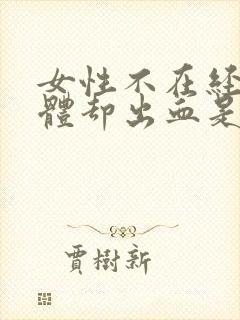 女性不在經
體却出血是
賈樹新